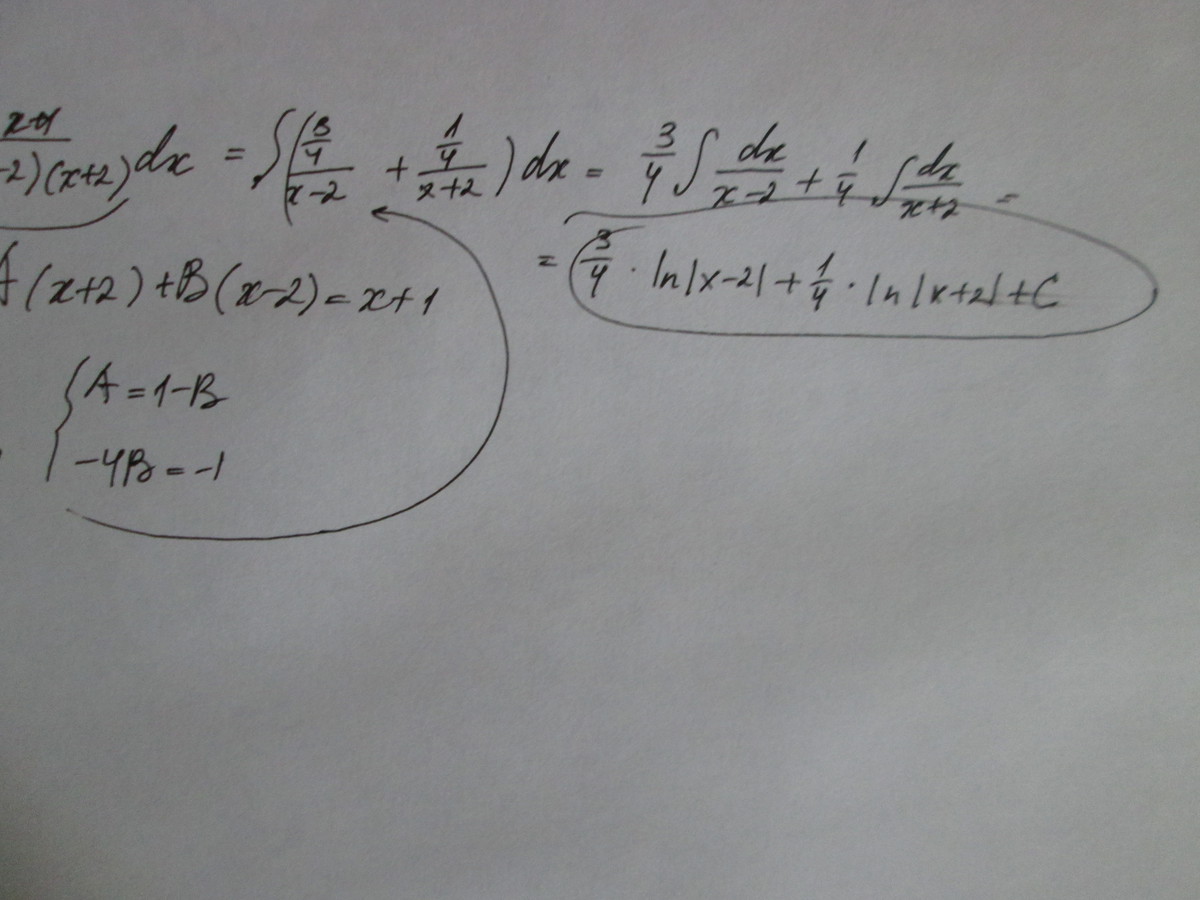 x+1/-2)(x+2) dx = ∫(3/4/x-2 + 1/4/x+2) dx = 3/4 ∫ dx/x-2 + 1/4 ∫ dx/x+2 =
= 3/4 · ln|x-2| + 1/4 · ln|x+2| + C
A(x+2)+B(x-2)=x+1
{A=1-B
-4B=-1